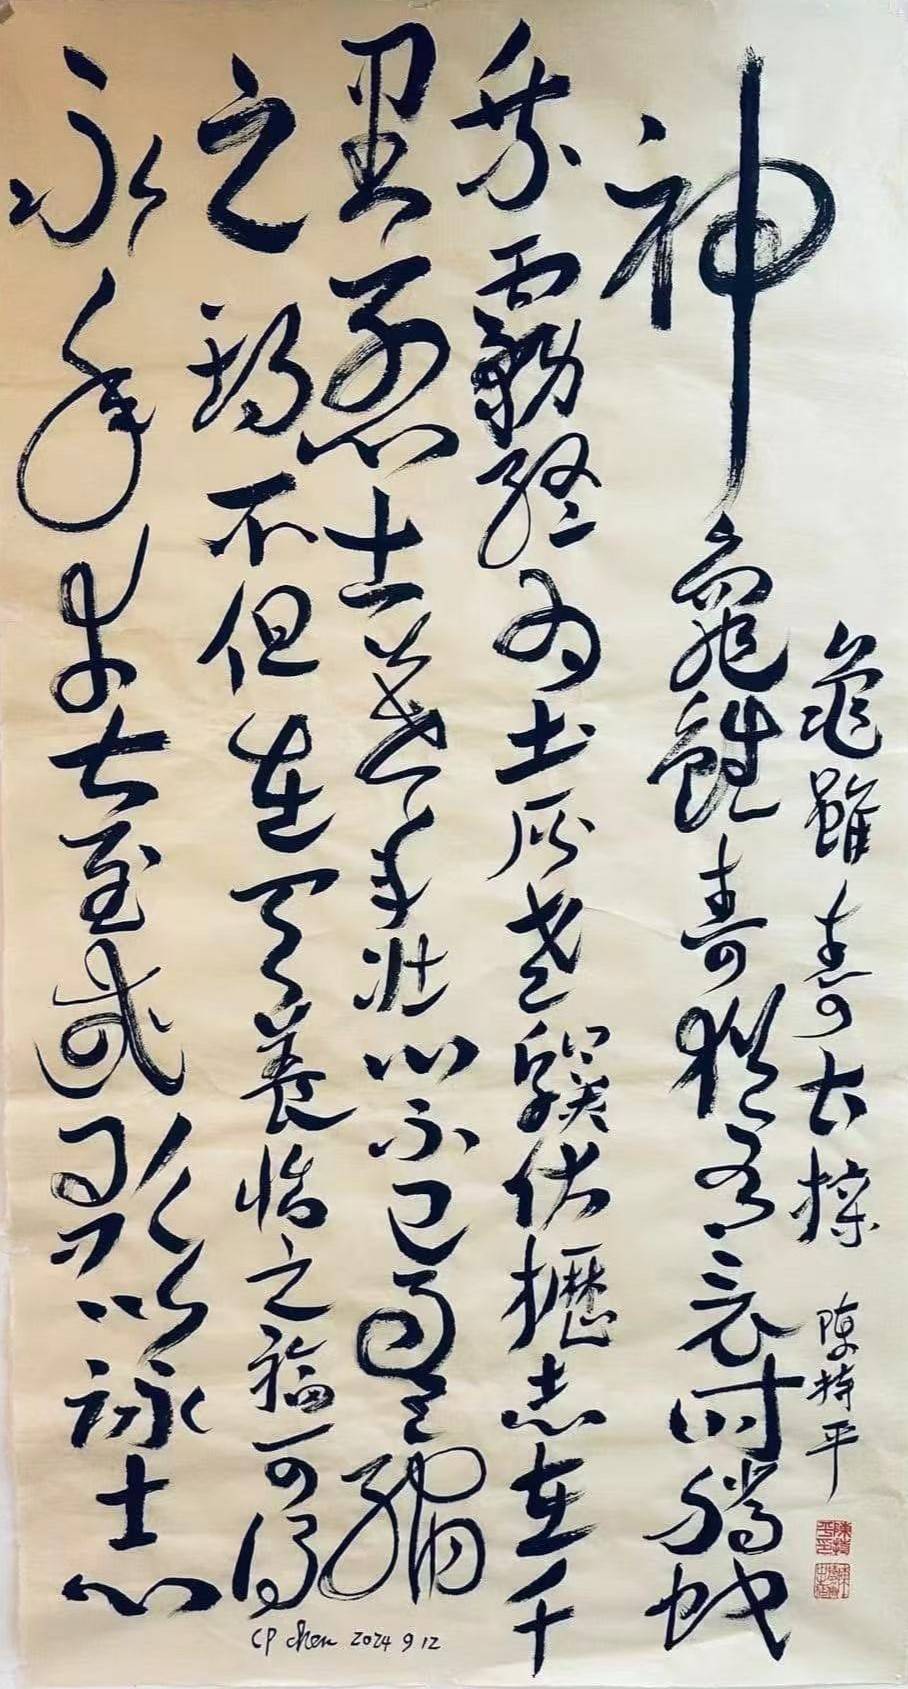 龜雖壽 曹操 陳持平
神龜雖壽猶有竟時騰蛇
乘霧終為土灰老驥伏櫪志在千
里烈士暮年壯心不已盈縮
之期不但在天養怡之福可得
永年幸甚至哉歌以詠志
CP chen 2024 9 12